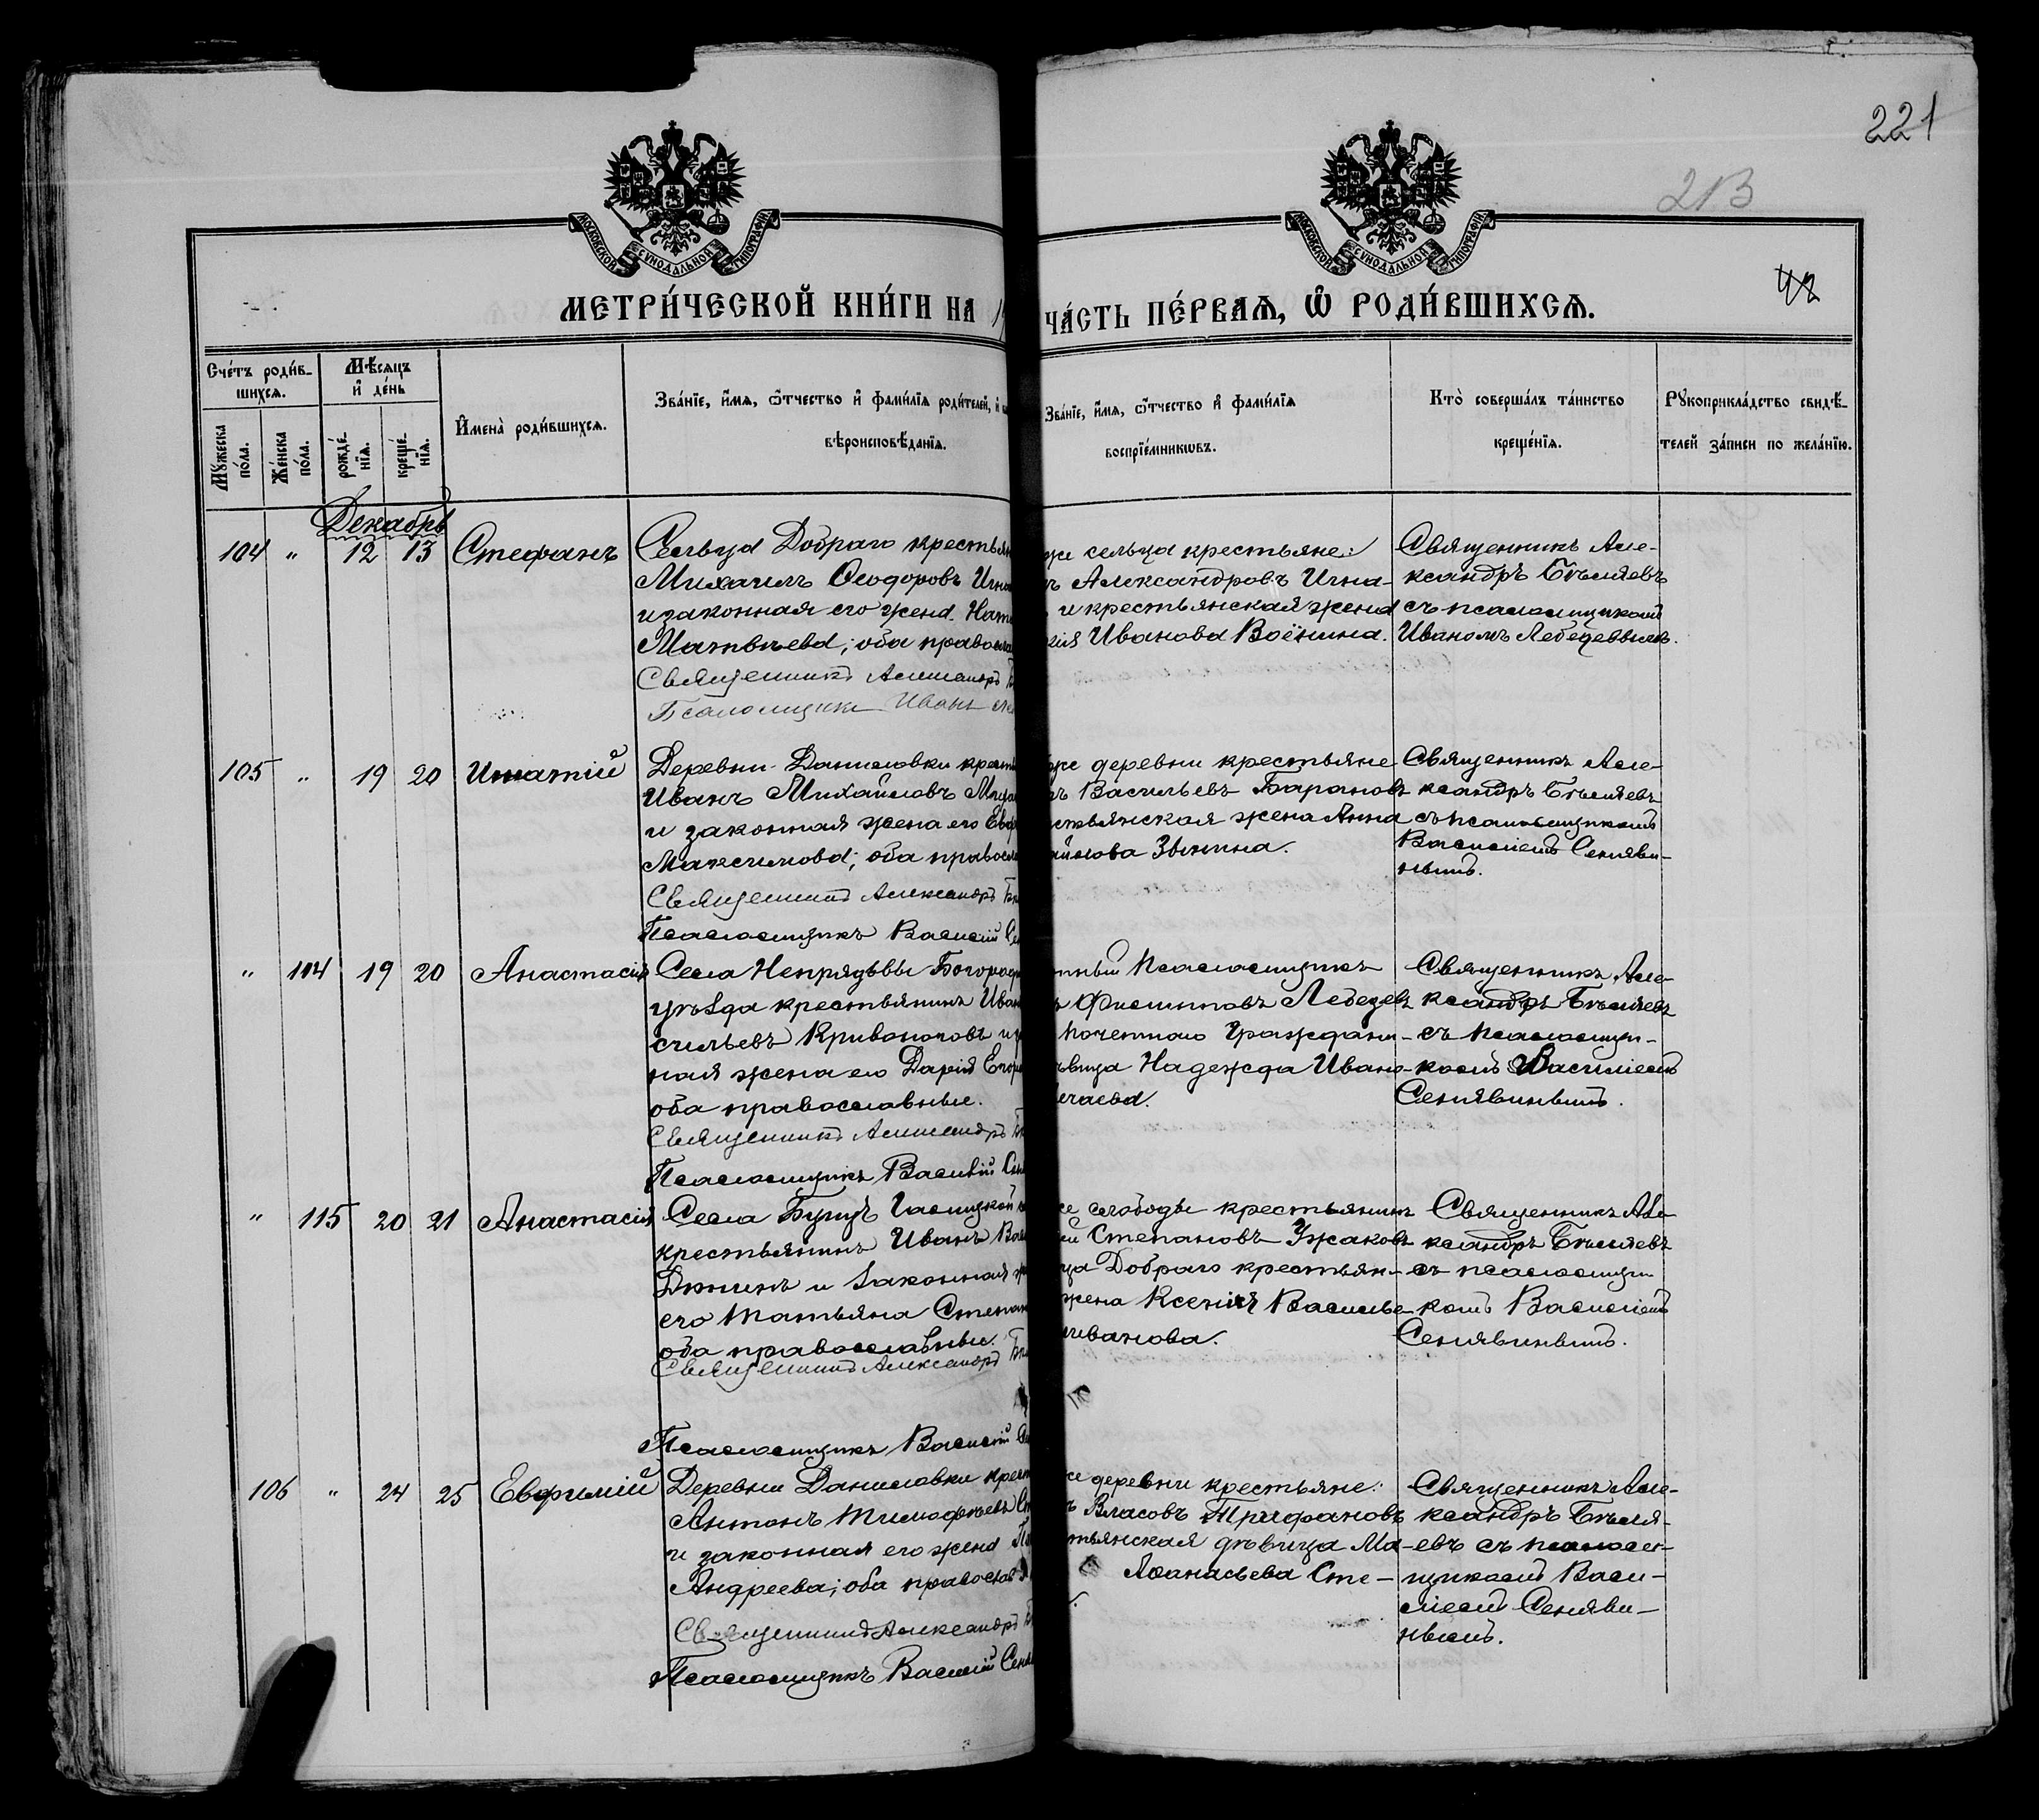 221
213
42
МОСКОВСКОЙ СѴНОДАЛЬНОЙ ТИПОГРАФІИ
МОСКОВСКОЙ СѴНОДАЛЬНОЙ ТИПОГРАФІИ
МЕТРИ́ЧЕСКОЙ КНИ́ГИ НА 1
ЧА́СТЬ ПЕ́РВАѦ, Ѿ РОДИ́ВШИХСѦ.
Сче́тъ роди́в-
шихсѧ.
Мѣ́сѧцъ
и҆ де́нь
Мꙋ́жеска по́ла.
Же́нска по́ла.
рожде́-
нїѧ.
креще́-
нїѧ.
И҆мена̀ роди́вшихсѧ.
Зва́нїе, и҆́мѧ, ѻ҆́тчество и҆ фами́лїѧ роди́телей, и҆
вѣроисповѣ́данїѧ.
Зва́нїе, и҆́мѧ, ѻ҆́тчество и҆ фами́лїѧ
воспрїе́мникѡвъ.
Кто̀ соверша́лъ та́инство
креще́нїѧ.
Рꙋкоприкла́дство свидѣ́-
телей за́писи по жела́нїю.
Декабрь
104 " 12 13 Стефанъ
Сельца Добраго крестьян
Михаилъ Ѳеодоровъ Игна
и законная его жена Ната
Матвѣева; оба правосла
Священникъ Александръ Б
Псаломщикъ Иванъ Ле
же сельца крестьяне:
ъ Александровъ Игна-
и крестьянская жена
кія Иванова Воёнина.
Священникъ Але-
ксандръ Бѣляевъ
съ псаломщикомъ
Иваномъ Лебедевымъ.
105 " 19 20 Игнатій
Деревни Даниловки кресть
Иванъ Михайловъ
и законная жена его Евд
Максимова; оба правосл
Священникъ Александръ Бѣ
Псаломщикъ Василій Се
же деревни крестьяне
ъ Васильевъ Барановъ
стьянская жена Анна
айлова Звѣгина.
Священникъ Але-
ксандръ Бѣляевъ
съ псаломщикомъ
Василіемъ Сеняви-
нымъ.
" 114 19 20 Анастасія
Села Непрядвы Богород
уѣзда крестьянинъ Иван
сильевъ Кривоноговъ и з
ная жена его Дарія Егор
оба православные.
Священникъ Александръ Бѣ
Псаломщикъ Василій Сен
тный псаломщикъ
ъ Филипповъ Лебедевъ
почетнаго гражdани-
ѣвица Надежда Ивано-
ечаева.
Священникъ Але-
ксандръ Бѣляевъ
съ псаломщи-
комъ Василіемъ
Сенявинымъ.
" 115 20 21 Анастасія
Села Буицъ Галицкой
крестьянинъ Иванъ Вас
Дюкинъ и законная ж
его Татьяна Степан
оба православные.
Священникъ Александръ Бѣ
Псаломщикъ Василій Се
же слободы крестьянинъ
ій Степановъ Ужаковъ
ца Добраго крестьян-
жена Ксенія Василье-
ливанова.
Священникъ Але-
ксандръ Бѣляевъ
съ псаломщи-
комъ Василіемъ
Сенявинымъ.
106 " 24 25 Евфимій
Деревни Даниловки крест
Антонъ Тимофѣевъ Ст
и законная его жена
Андреева; оба православ
Священникъ Александръ Б
Псаломщикъ Василій Сеня
же деревни крестьяне:
ъ Власовъ Трифановъ
тьянская дѣвица Ма-
Аѳанасьева Сте-
Священникъ Але-
ксандръ Бѣля-
евъ съ псалом-
щикомъ Васи-
ліемъ Сеняви-
нымъ.